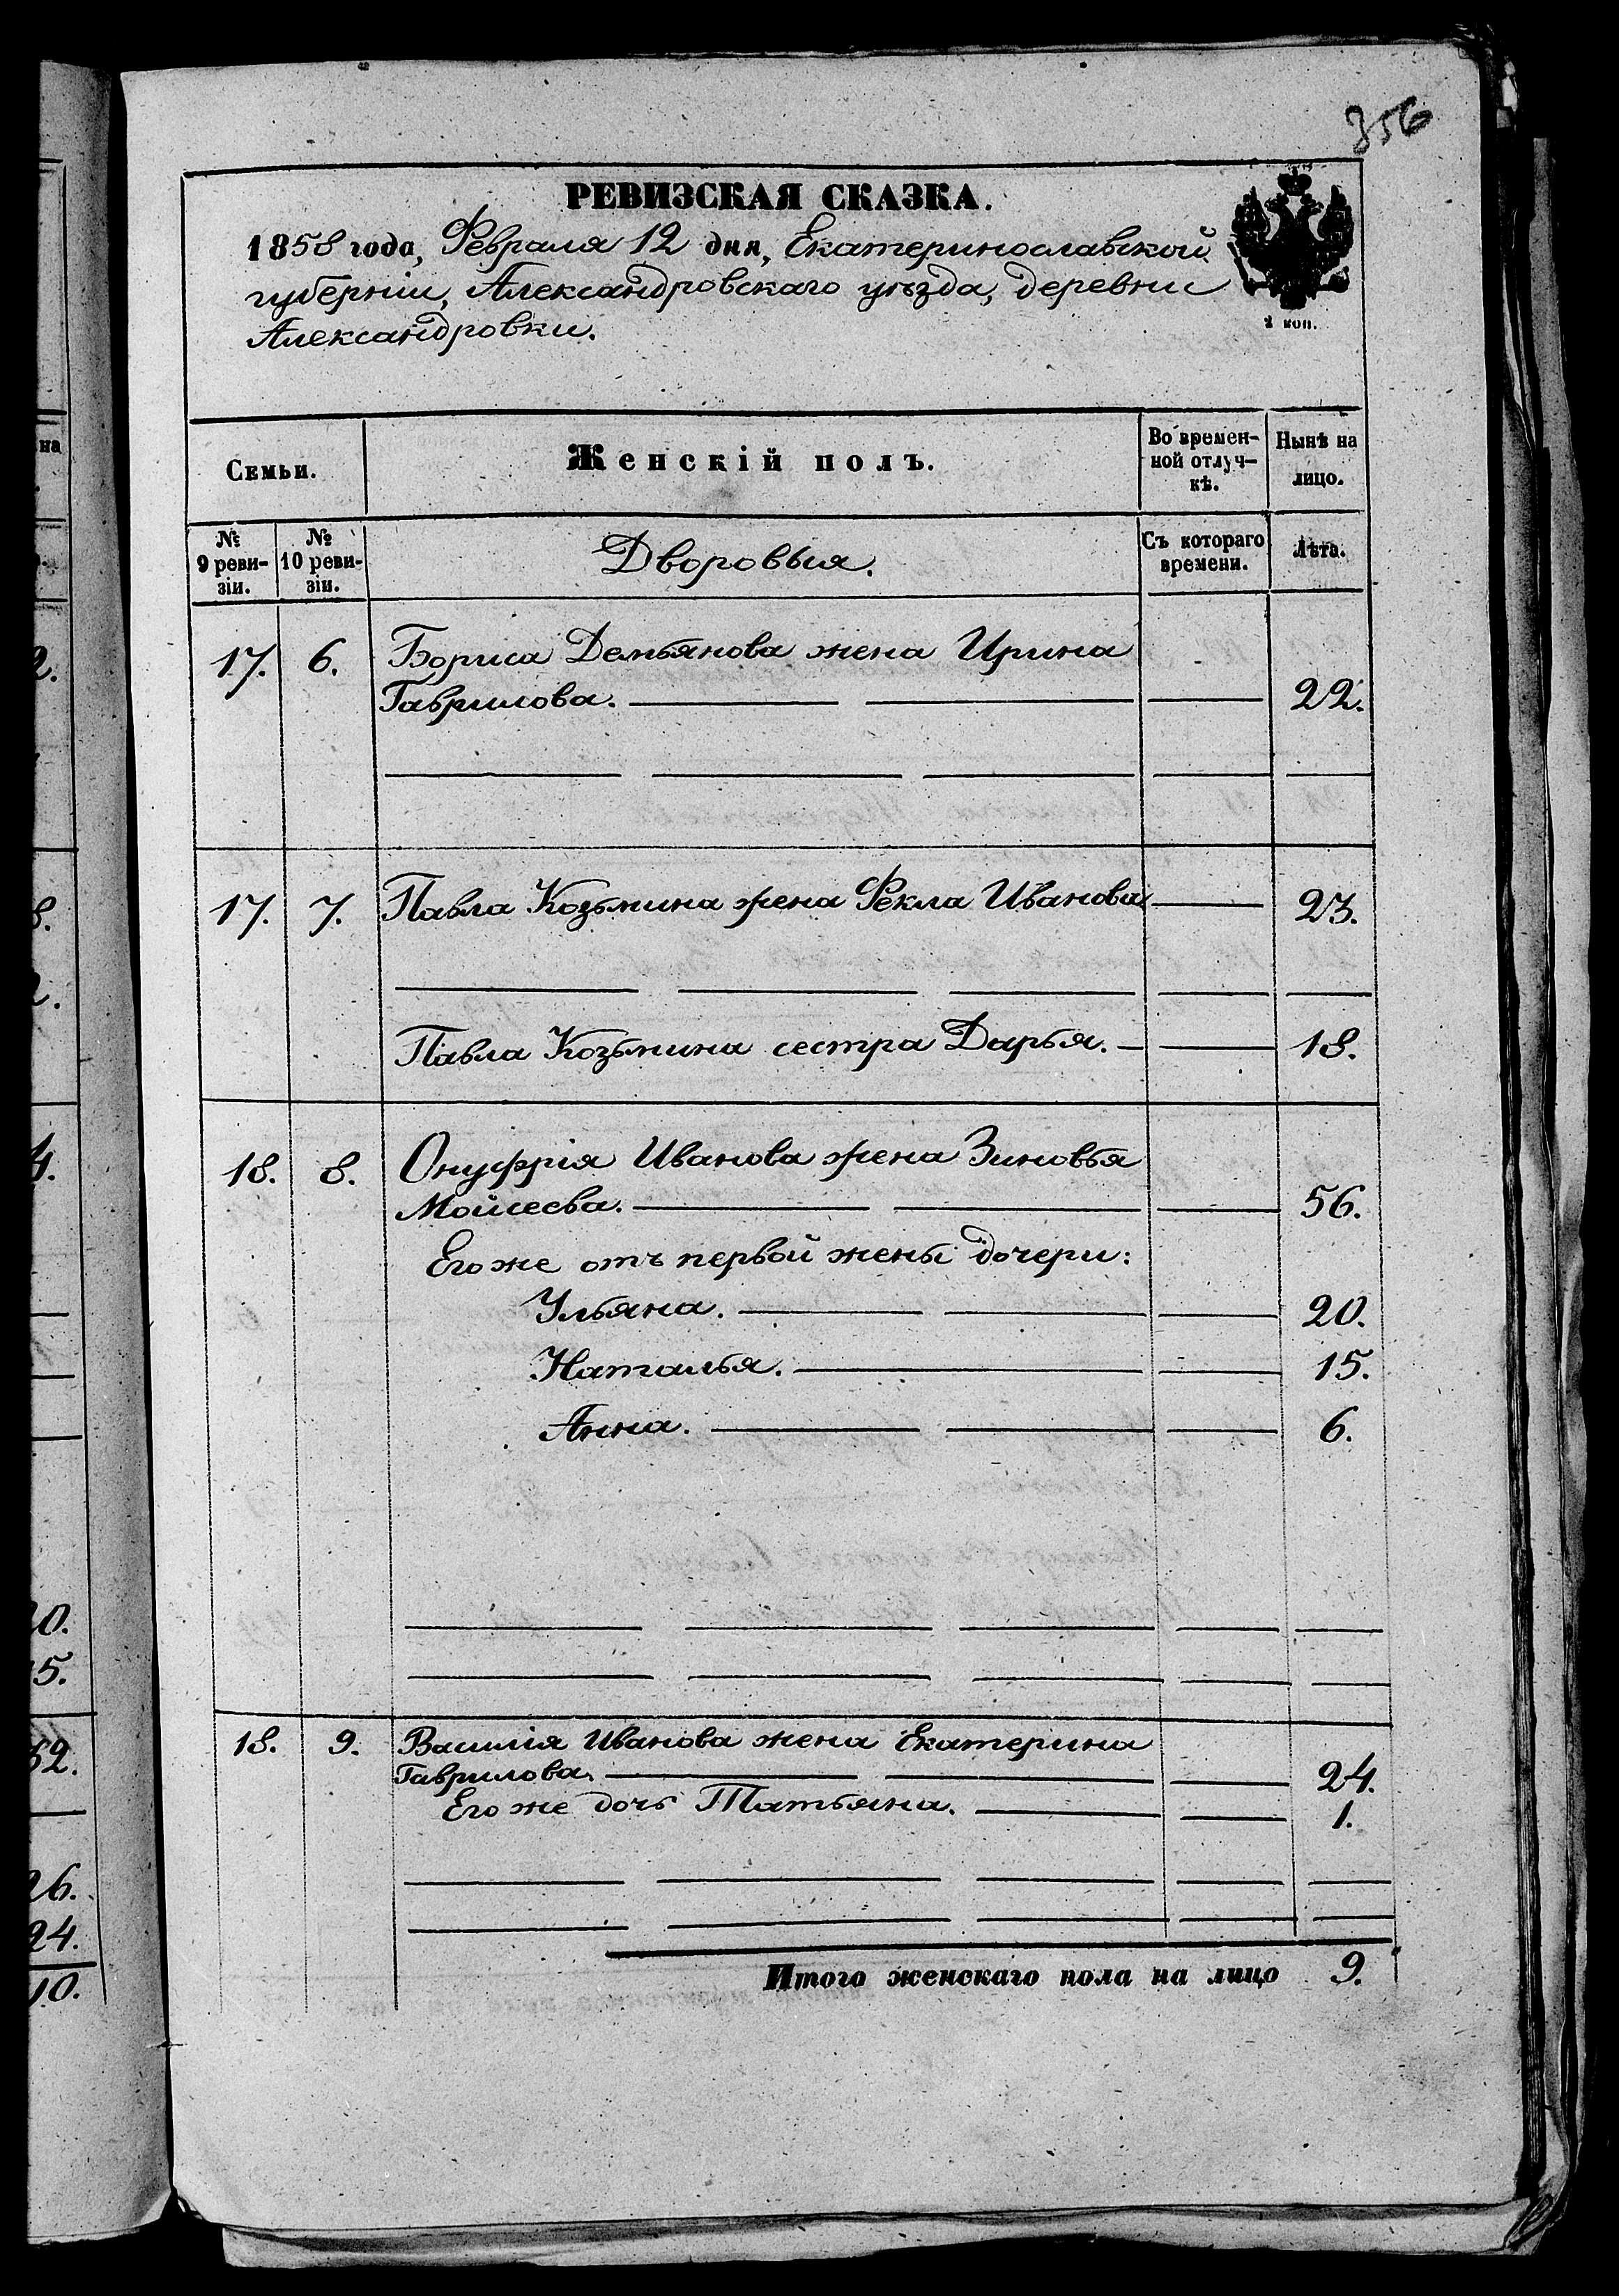 356
РЕВИЗСКАЯ СКАЗКА.
1858 года, Февраля 12 дня, Екатеринославской
губерніи, Александровскаго уѣзда, деревни
Александровки.
2 коп.
Семьи.
Женскій полъ.
Во времен-
ной отлуч-
кѣ.
Нынѣ на
лицо.
№
9 реви-
зіи.
№
10 реви-
зіи.
Дворовыя.
Съ котораго
времени.
Лѣта.
17. 6. Бориса Демьянова жена Ирина
Гаврилова. 22.
17. 7. Павла Козьмина жена Фекла Иванова 23.
Павла Козьмина сестра Дарья. 18.
18. 8. Онуфрія Иванова жена Зиновья
Мойсеева. 56.
Его же отъ первой жены дочери:
Ульяна. 20.
Наталья. 15.
Анна. 6.
18. 9. Василія Иванова жена Екатерина
Гаврилова. 24.
Его же дочь Татьяна. 1.
Итого женскаго пола на лицо 9.